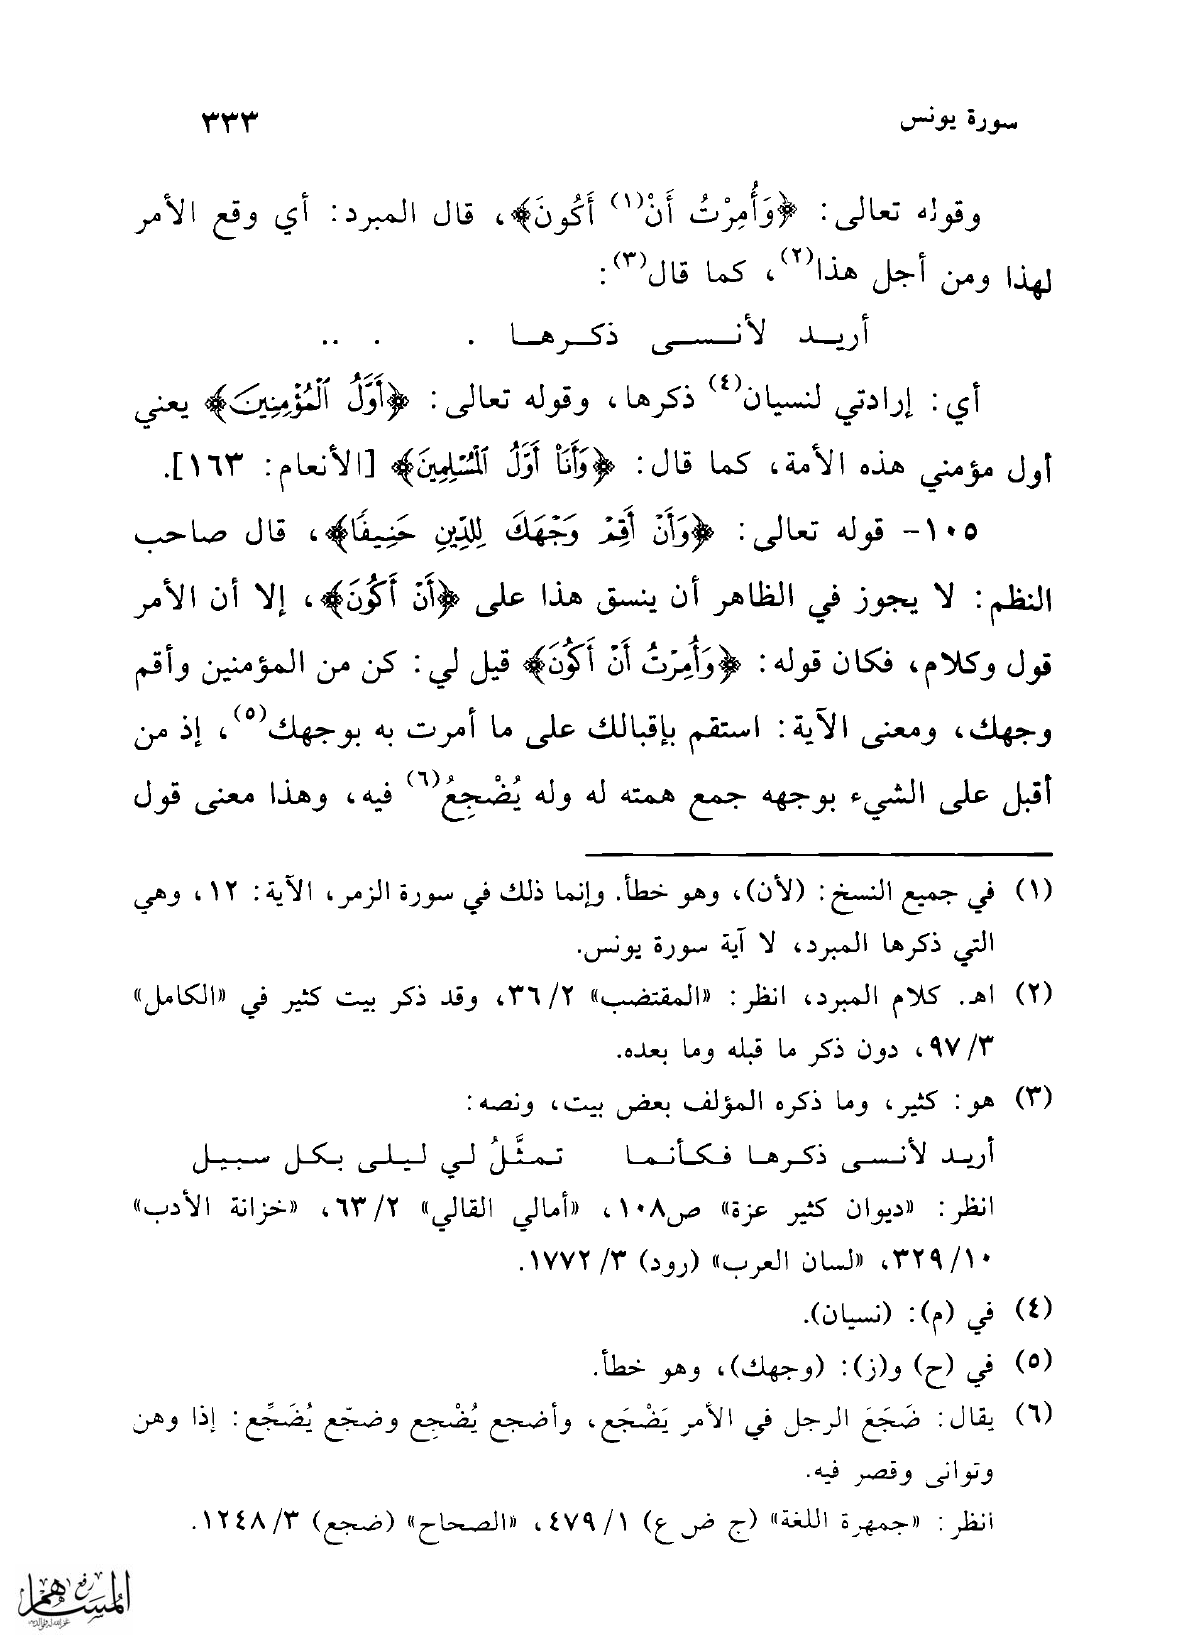 سورة يونس ٣٣٣
وقوله تعالى: ﴿وَأُمِرْتُ أَنْ(١) أَكُونَ﴾، قال المبرد: أي وقع الأمر
لهذا ومن أجل هذا(٢)، كما قال(٣):
أريد لأنسى ذكرها . . ..
أي: إرادتي لنسيان(٤) ذكرها، وقوله تعالى: ﴿أَوَّلُ الْمُؤْمِنِينَ﴾ يعني
أول مؤمني هذه الأمة، كما قال: ﴿وَأَنَا أَوَّلُ الْمُسْلِمِينَ﴾ [الأنعام: ١٦٣].
١٠٥- قوله تعالى: ﴿وَأَنْ أَقِمْ وَجْهَكَ لِلدِّينِ حَنِيفًا﴾، قال صاحب
النظم: لا يجوز في الظاهر أن ينسق هذا على ﴿أَنْ أَكُونَ﴾، إلا أن الأمر
قول وكلام، فكان قوله: ﴿وَأُمِرْتُ أَنْ أَكُونَ﴾ قيل لي: كن من المؤمنين وأقم
وجهك، ومعنى الآية: استقم بإقبالك على ما أمرت به بوجهك(٥)، إذ من
أقبل على الشيء بوجهه جمع همته له وله يُضْجِعُ(٦) فيه، وهذا معنى قول
(١) في جميع النسخ: (لأن)، وهو خطأ. وإنما ذلك في سورة الزمر، الآية: ١٢، وهي
التي ذكرها المبرد، لا آية سورة يونس.
(٢) اهـ. كلام المبرد، انظر: «المقتضب» ٢/ ٣٦، وقد ذكر بيت كثير في «الكامل»
٣/ ٩٧، دون ذكر ما قبله وما بعده.
(٣) هو: كثير، وما ذكره المؤلف بعض بيت، ونصه:
أريد لأنسى ذكرها فكأنما تمثَّلُ لي ليلى بكل سبيل
انظر: «ديوان كثير عزة» ص١٠٨، «أمالي القالي» ٢/ ٦٣، «خزانة الأدب»
١٠/ ٣٢٩، «لسان العرب» (رود) ٣/ ١٧٧٢.
(٤) في (م): (نسيان).
(٥) في (ح) و(ز): (وجهك)، وهو خطأ.
(٦) يقال: ضَجَعَ الرجل في الأمر يَضْجَع، وأضجع يُضْجِع وضجّع يُضَجِّع: إذا وهن
وتوانى وقصر فيه.
انظر: «جمهرة اللغة» (ج ض ع) ١/ ٤٧٩، «الصحاح» (ضجع) ٣/ ١٢٤٨.